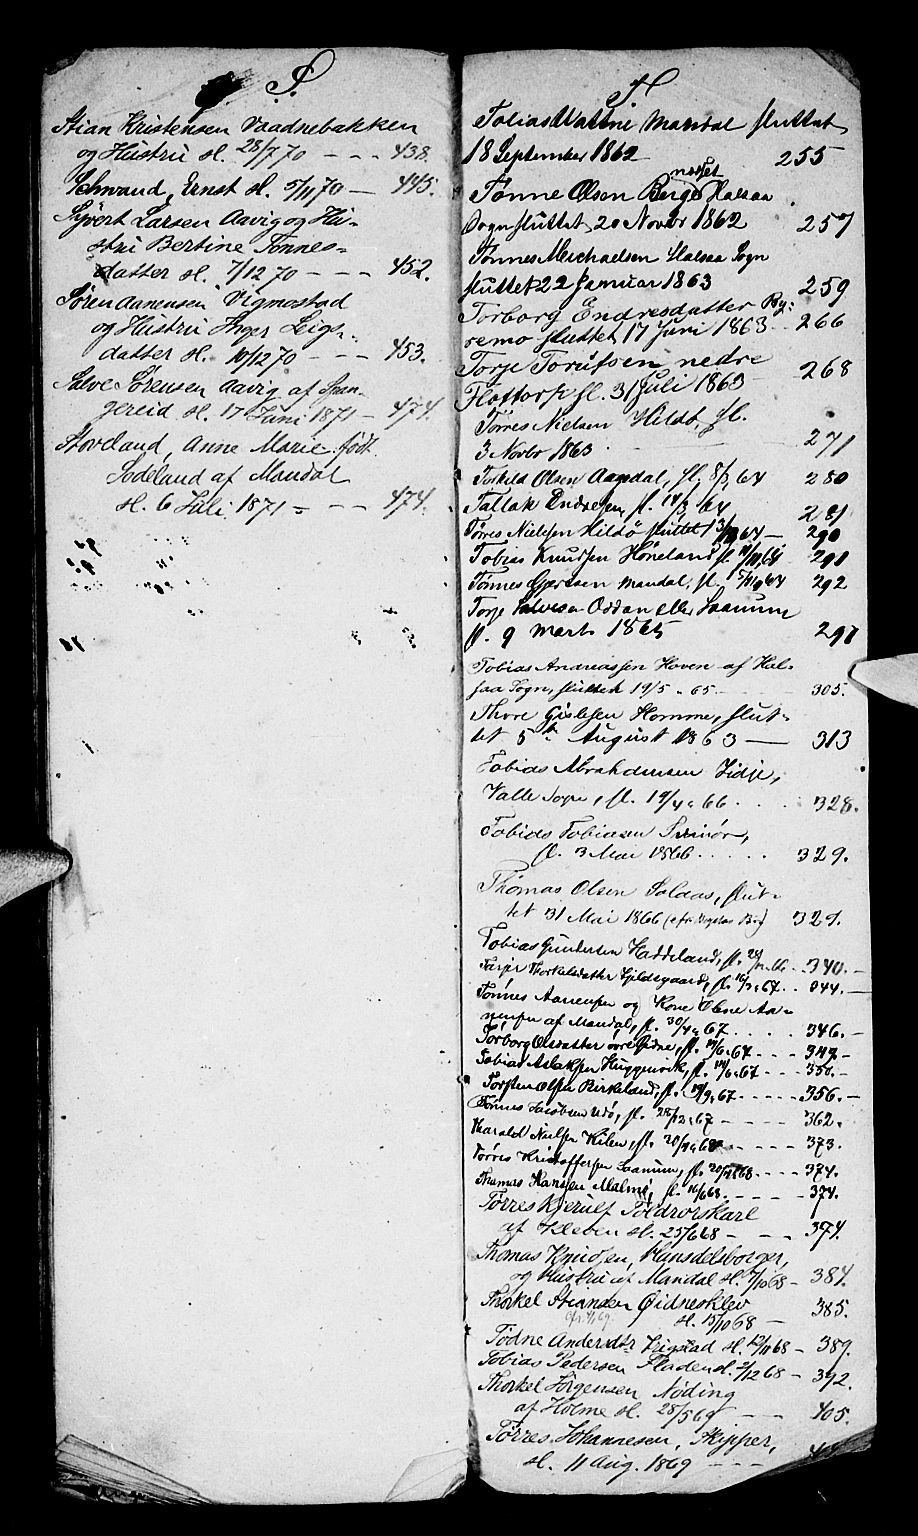 S.
Stian Kristensen Vaadnebakken
og Hustru sl. 28/7 70 - - - 438.
Schwand, Ernst sl. 5/11 70 - 445.
Syvert Larsen Aavig og Hu-
stru Bertine Tønnes-
datter sl. 7/12 70 - - - 452.
Søren Aanensen Vigmostad
og Hustru Inger Leigs-
datter sl. 10/12 70 - - - 453.
Salve Sørensen Aavig af Span-
gereid sl. 17 Juni 1871 - 474.
Stoveland, Anne Marie født
Sodeland af Mandal
sl. 6 Juli 1871 - - - 474.
T.
Tobias Wattne Mandal sluttet
18 September 1862 255
Tønne Olsen Berge Halsaa
Sogn sluttet 20 Novbr 1862 257
Tønnes Meichaelsen Halsaa Sogn
sluttet 22 Januar 1863 259
Torborg Endresdatter By-
remo sluttet 17 Juni 1863 - 266
Torje Torufsen nedre
Flottorp sl. 31 Juli 1863 268
Tørres Nielsen Hildø, sl.
3 Novbr 1863 271
Torkild Olsen Aagedal, sl. 8/3 64 280
Tallak Endresen, sl. 14/3 64 281
Tørres Nielsen Hildø sluttet 64 - 290
Tobias Knudsen Høneland sl. 64 291
Tønnes Gjertsen Mandal, sl. 64 292
Torje Salvesen Oddan eller Saanum
sl. 9 Marts 1865 297
Tobias Andreassen Hoven af Hal-
saa Sogn, sluttet 19/5 - 65 305.
Thore Gislesen Homme, slut-
tet 5te August 1863 — 313
Tobias Abrahamsen Lidje,
Valle Sogn, sl. 19/4 - 66 328.
Tobias Tobiasen Svinør,
sl. 3 Mai 1866 329.
Thomas Olsen Solaas, slut-
tet 31 Mai 1866 329.
Tobias Gundersen Haddeland, sl. 340. -
Tarjer Thorkelsdatter Gjeldegaard, sl. 67 344. -
Tønnes Aanensen og Kone Olene Aa-
nensen af Mandal, sl. 30/4 67 346. -
Torborg Olsdatter øvre Øidne, sl. 14/6 67 - - - 347 -
Tobias Aslaksen Huggenvik, sl. 14/6 67 - - - 350. -
Torsten Olsen Birkeland, sl. 14/9 67 - - - 356. -
Tønnes Jacobsen Udø, sl. 28/12 67 - - - 362.
Harald Nielsen Kilen, sl. 20/4 68 - - - 373.
Tørres Kristoffersen Saanum, sl. 68 - - - 374.
Thomas Hansen Malmø, sl. 16/6 68 - - - 374.
Tørres Kjerulf Toldrorskarl
af Kleven sl. 25/6 68 - - - 374.
Thomas Knudsen, Handelsborger,
og Hustru af Mandal sl. 7/10 68 - 384.
Thorkel Stiansen Øidnesklev
sl. 15/10 68 - 385.
Tødne Andersdtr Leigstad sl. 12/11 68 - 389.
Tobias Pedersen Fladen sl. 2/12 68 - 392.
Thorkel Jørgensen Nøding
af Holme sl. 28/5 69 - - - 405.
Tørres Johannesen, Skipper,
sl. 11 Aug. 1869 - - -